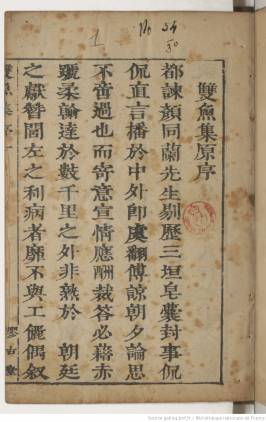 雙魚集原序
都諫顏同蘭先生剔歷三垣皂囊封事侃
侃直言播於中外卽虞翻傅諒朝夕論思
不啻過也而寄意宣情應酬裁答必藉赤
號柔翰達於數千里之外非熟於 朝廷
之獻替閭左之利病者靡不與工儷偶叙
雙魚集序一
Source gallica.bnf.fr / Bibliothèque nationale de France